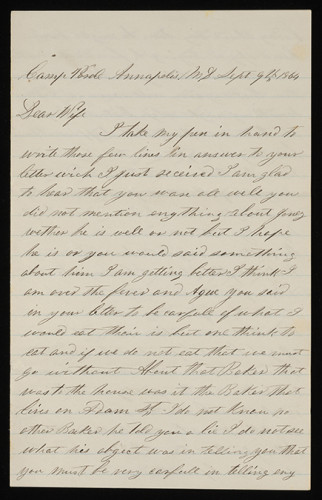 Camp Annapolis Md Sept 9th 1864
Dear Wife
I take my pen in hand to
write these few lines in answer to your
letter wich I just received I am glad
to hear that you ware all well you
did not mention enything about
wether he is well or not but I hope
he is or you would said something
about him I am getting better I think I
am over the fever and Ague you said
in your letter to be carfull of what I
would eat their is but one think to
eat and if we do not eat that we must
go without About that Baker that
was to the house was it the Baker that
lives on St I do not know no
other Baker he told you a lie I do not see
what his object was in telling you that
you must be very carfull in telling eny